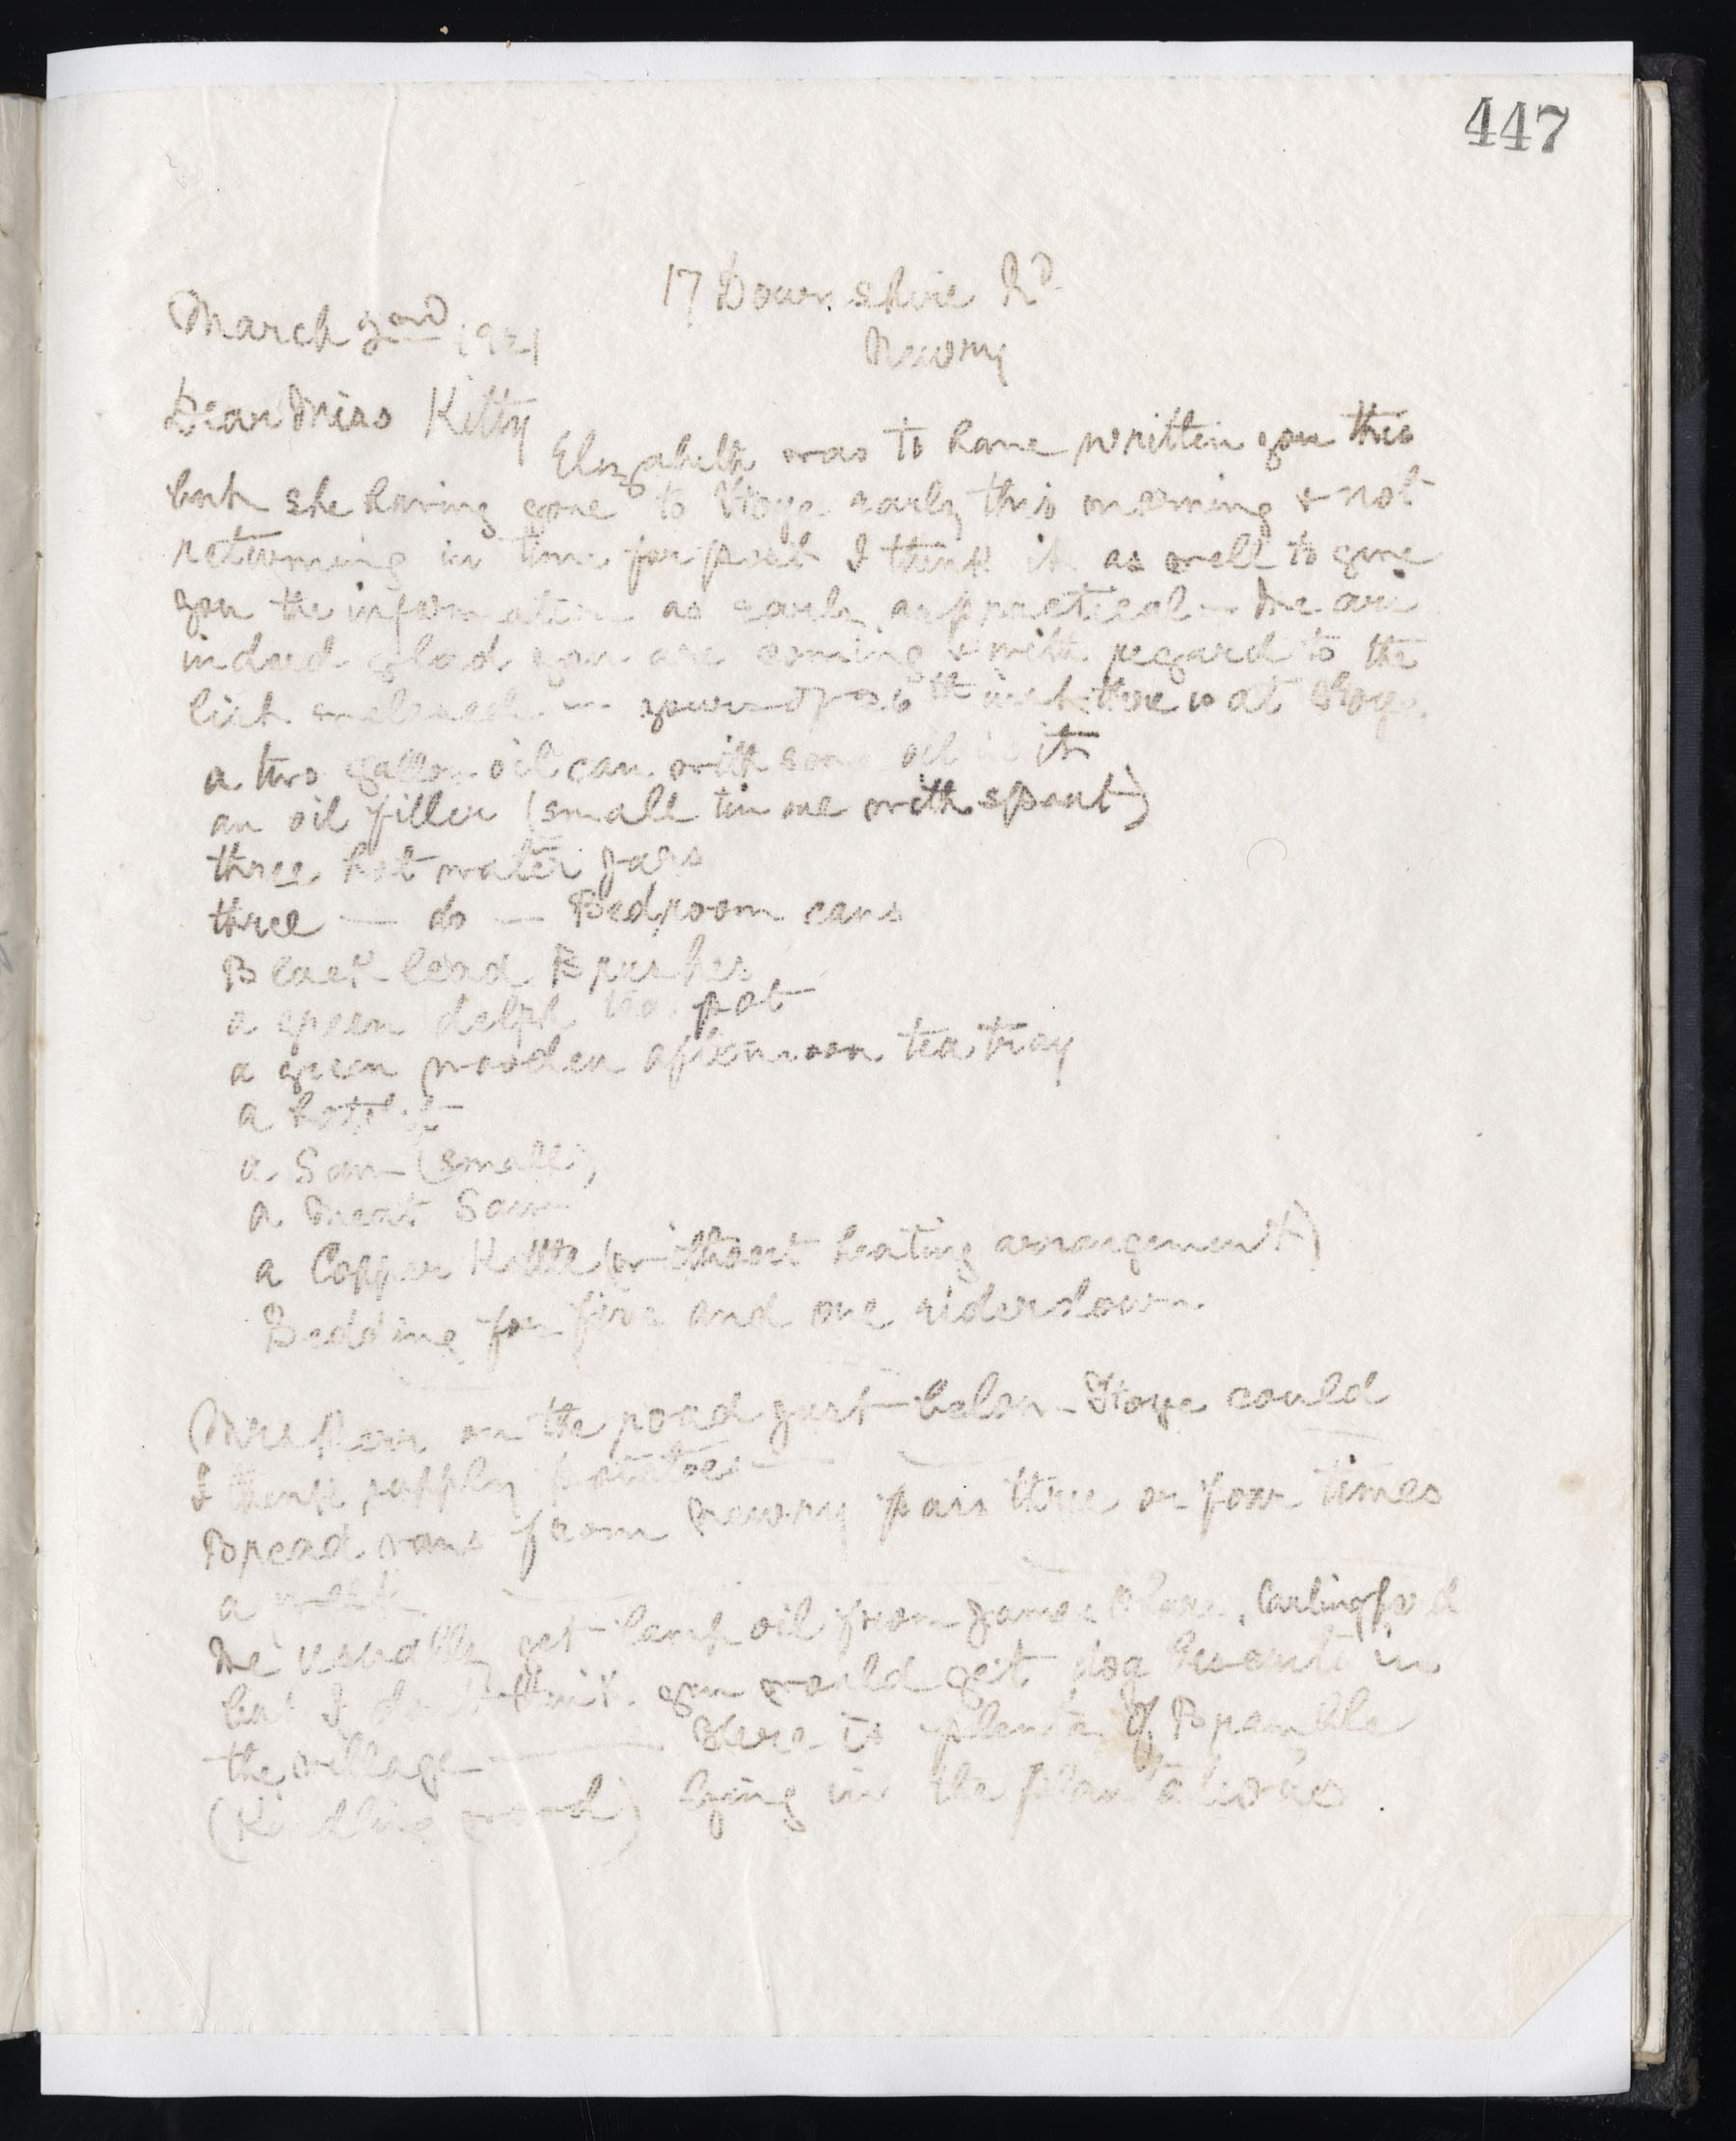 447
17 Downshire Rd
March 2nd 1921
Newry
Dear Miss Kitty
Elizabeth was to have written you this
but she having gone to early this morning & not
returning in time for post I think it as well to give
you the information as early as practical — We are
indeed glad you are coming & with regard to the
list enclosed in yours of 26th there is at
a two gallon oil can with some oil in it
an oil filler (small tin one with spout)
three hot water jars
three — do — Bedroom cans
Black-lead Brushes
a green delph tea pot
a green wooden afternoon tea tray
a
a Saw (small)
a Meat Saw
a Copper Kettle (without heating arrangement)
Bedding for five and one eiderdown.
Mrs on the road just below could
I think supply potatoes
Bread vans from Newry pass three or four times
a week
We usually get lamp oil from James Carlingford
but I don't think you would get in
the village — There is plenty of Bramble
(Kindling wood) lying in the plantations.